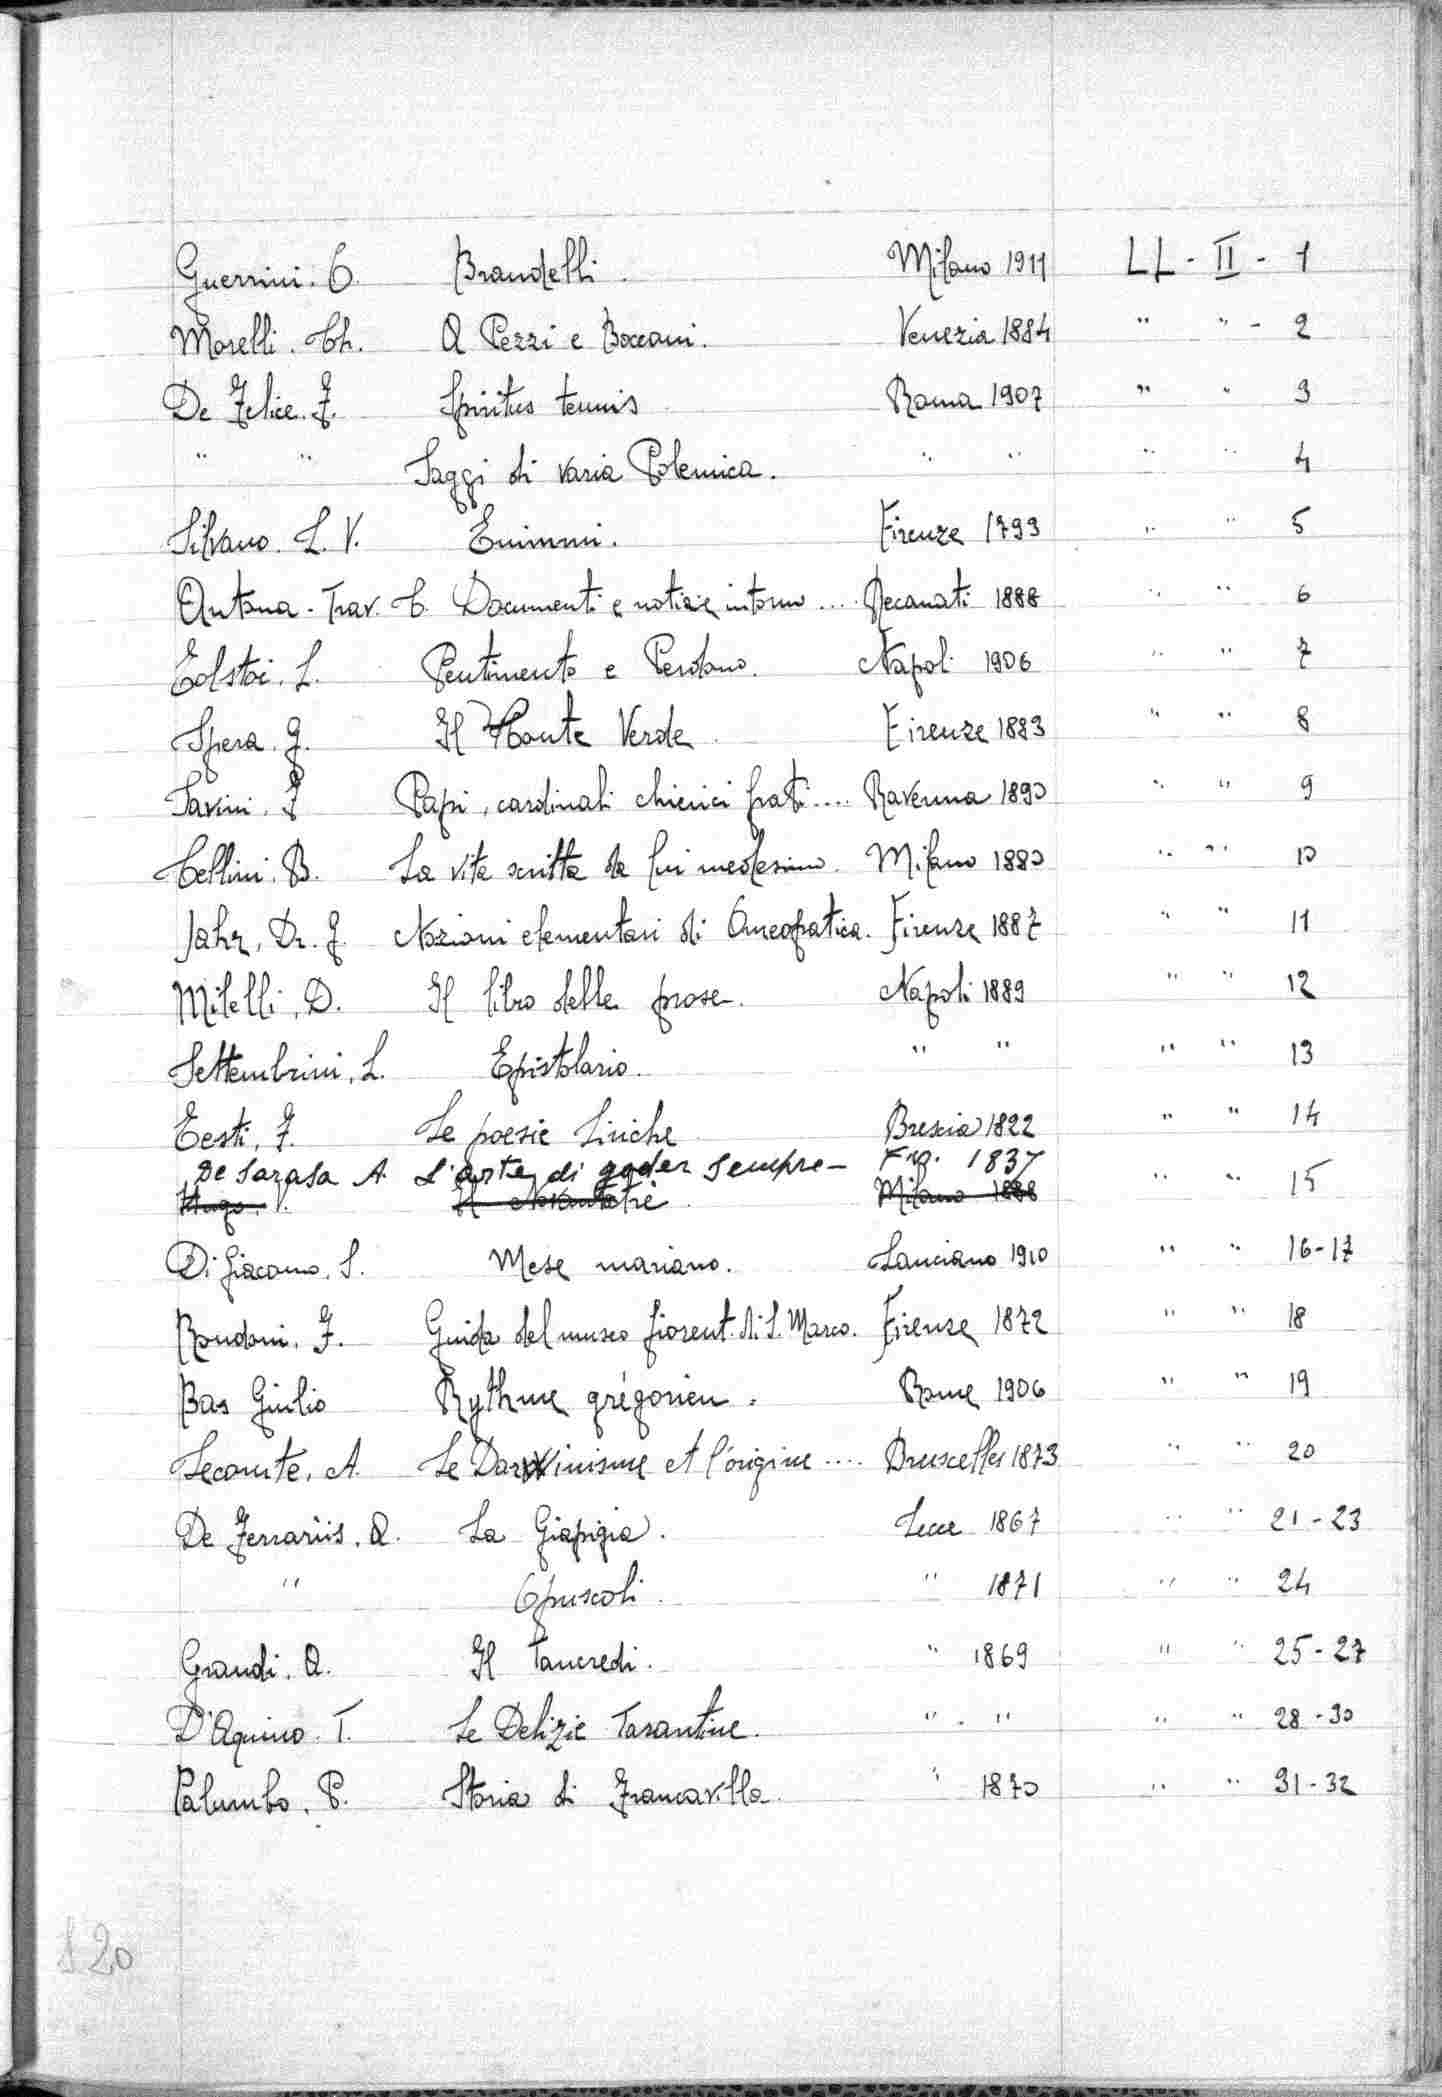 Guerrini. O. Brandelli. Milano 1911 LL - II - 1
Morelli. Ch. A Pezzi e Bocconi. Venezia 1884 " " - 2
De Felice. F. Spiritus tennis Roma 1907 " " 3
" " Saggi di varia Polemica. " " " " 4
Silvano. L. V. Enimmi. Firenze 1793 " " 5
Antona - Trav. C. Documenti e notizie intorno .... Recanati 1888 " " 6
Tolstoi. L. Pentimento e Perdono. Napoli 1906 " " 7
Spera. G. Il Monte Verde Firenze 1883 " " 8
Savini. F Papi, cardinali chierici frati .... Ravenna 1890 " " 9
Cellini. B. La vita scritta da lui medesimo. Milano 1880 " " 10
Jahr, Dr. G. Nozioni elementari di Omeopatica. Firenze 1887 " " 11
Milelli, D. Il libro delle prose. Napoli 1889 " " 12
Settembrini, L. Epistolario. " " " " 13
Testi, F. Le poesie liriche Brescia 1822 " " 14
De Sarasa A. L'arte di goder sempre - 1837
Hugo. V. Il Novantatrè. Milano 1888 " " 15
Di Giacomo, S. Mese mariano. Lanciano 1910 " " 16-17
Rondoni. F. Guida del museo fiorent. di S. Marco. Firenze 1872 " " 18
Bas Giulio Rythme grégorien. Rome 1906 " " 19
Lecomte, A. Le Darwinisme et l'origine .... Bruxelles 1873 " " 20
De Ferrariis, A. La Giapigia. Lecce 1867 " " 21-23
" Opuscoli. " 1871 " " 24
Grandi. A. Il Tancredi. " 1869 " " 25-27
D'Aquino. T. Le Delizie Tarantine. " " " " 28-30
Palumbo. P. Storia di Francavilla. " 1870 " " 31-32
120